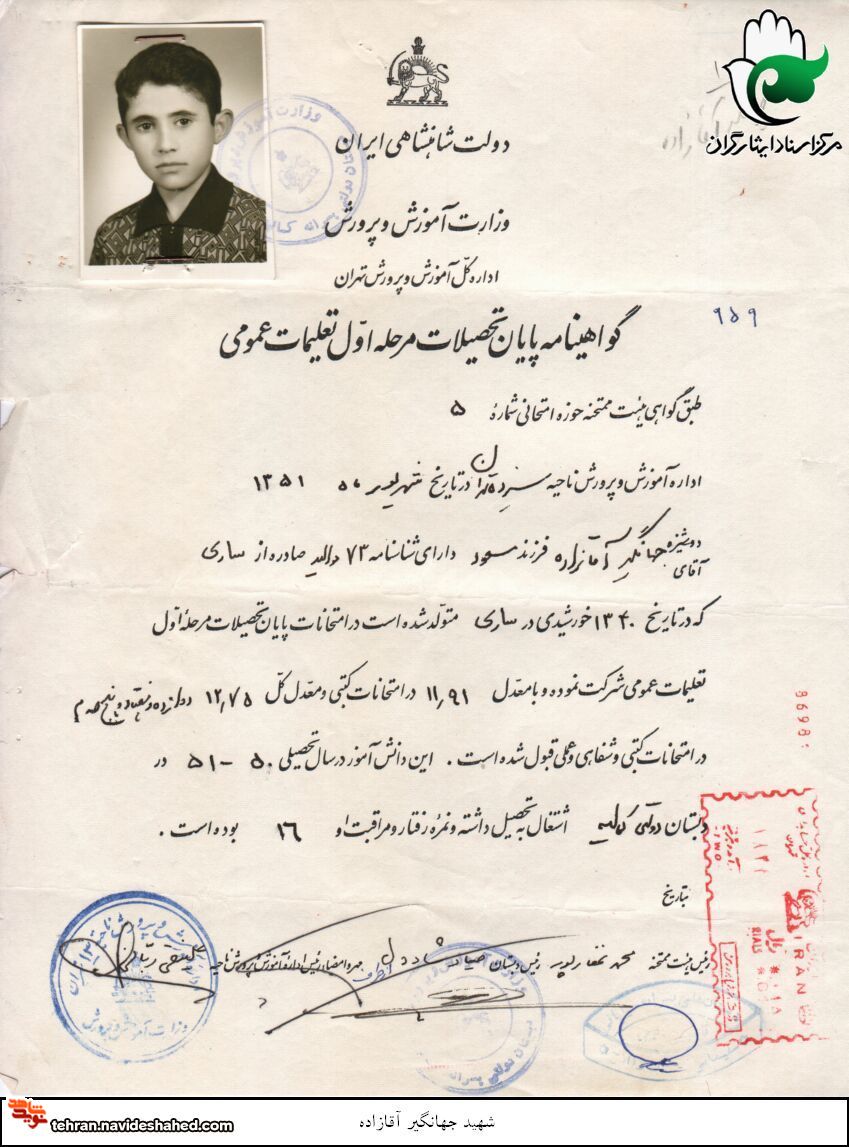 مرکز اسناد ایثارگران
دولت شاهنشاهی ایران
وزارت آموزش و پرورش
اداره کل آموزش و پرورش تهران
گواهینامه پایان تحصیلات مرحله اول تعلیمات عمومی
۹۵۹
طبق گواهی هیئت ممتحنه حوزه امتحانی شماره ۵
اداره آموزش و پرورش ناحیه در تاریخ شهریور ماه ۱۳۵۱
دوشیزه
آقای جهانگیر آقازاده فرزند مسعود دارای شناسنامه ۷۳ صادره از ساری
که در تاریخ ۱۳۴۰ خورشیدی در ساری متولد شده است در امتحانات پایان تحصیلات مرحله اول
تعلیمات عمومی شرکت نموده و با معدل ۱۱,۹۱ در امتحانات کتبی و معدل کل ۱۲,۷۵ دوازده و هفتاد و پنج صدم
در امتحانات کتبی و شفاهی و عملی قبول شده است . این دانش آموز در سال تحصیلی ۵۰ - ۵۱ در
دبستان دولتی اشتغال به تحصیل داشته و نمره رفتار و مراقبت او ۱۶ بوده است .
بتاریخ
رئیس هیئت ممتحنه محمد رئیس دبستان مهر و امضاء رئیس اداره آموزش و پرورش ناحیه
وزارت آموزش و پرورش
86981
IRAN
RIALS
شهید جهانگیر آقازاده
نوید شاهد
tehran.navideshahed.com